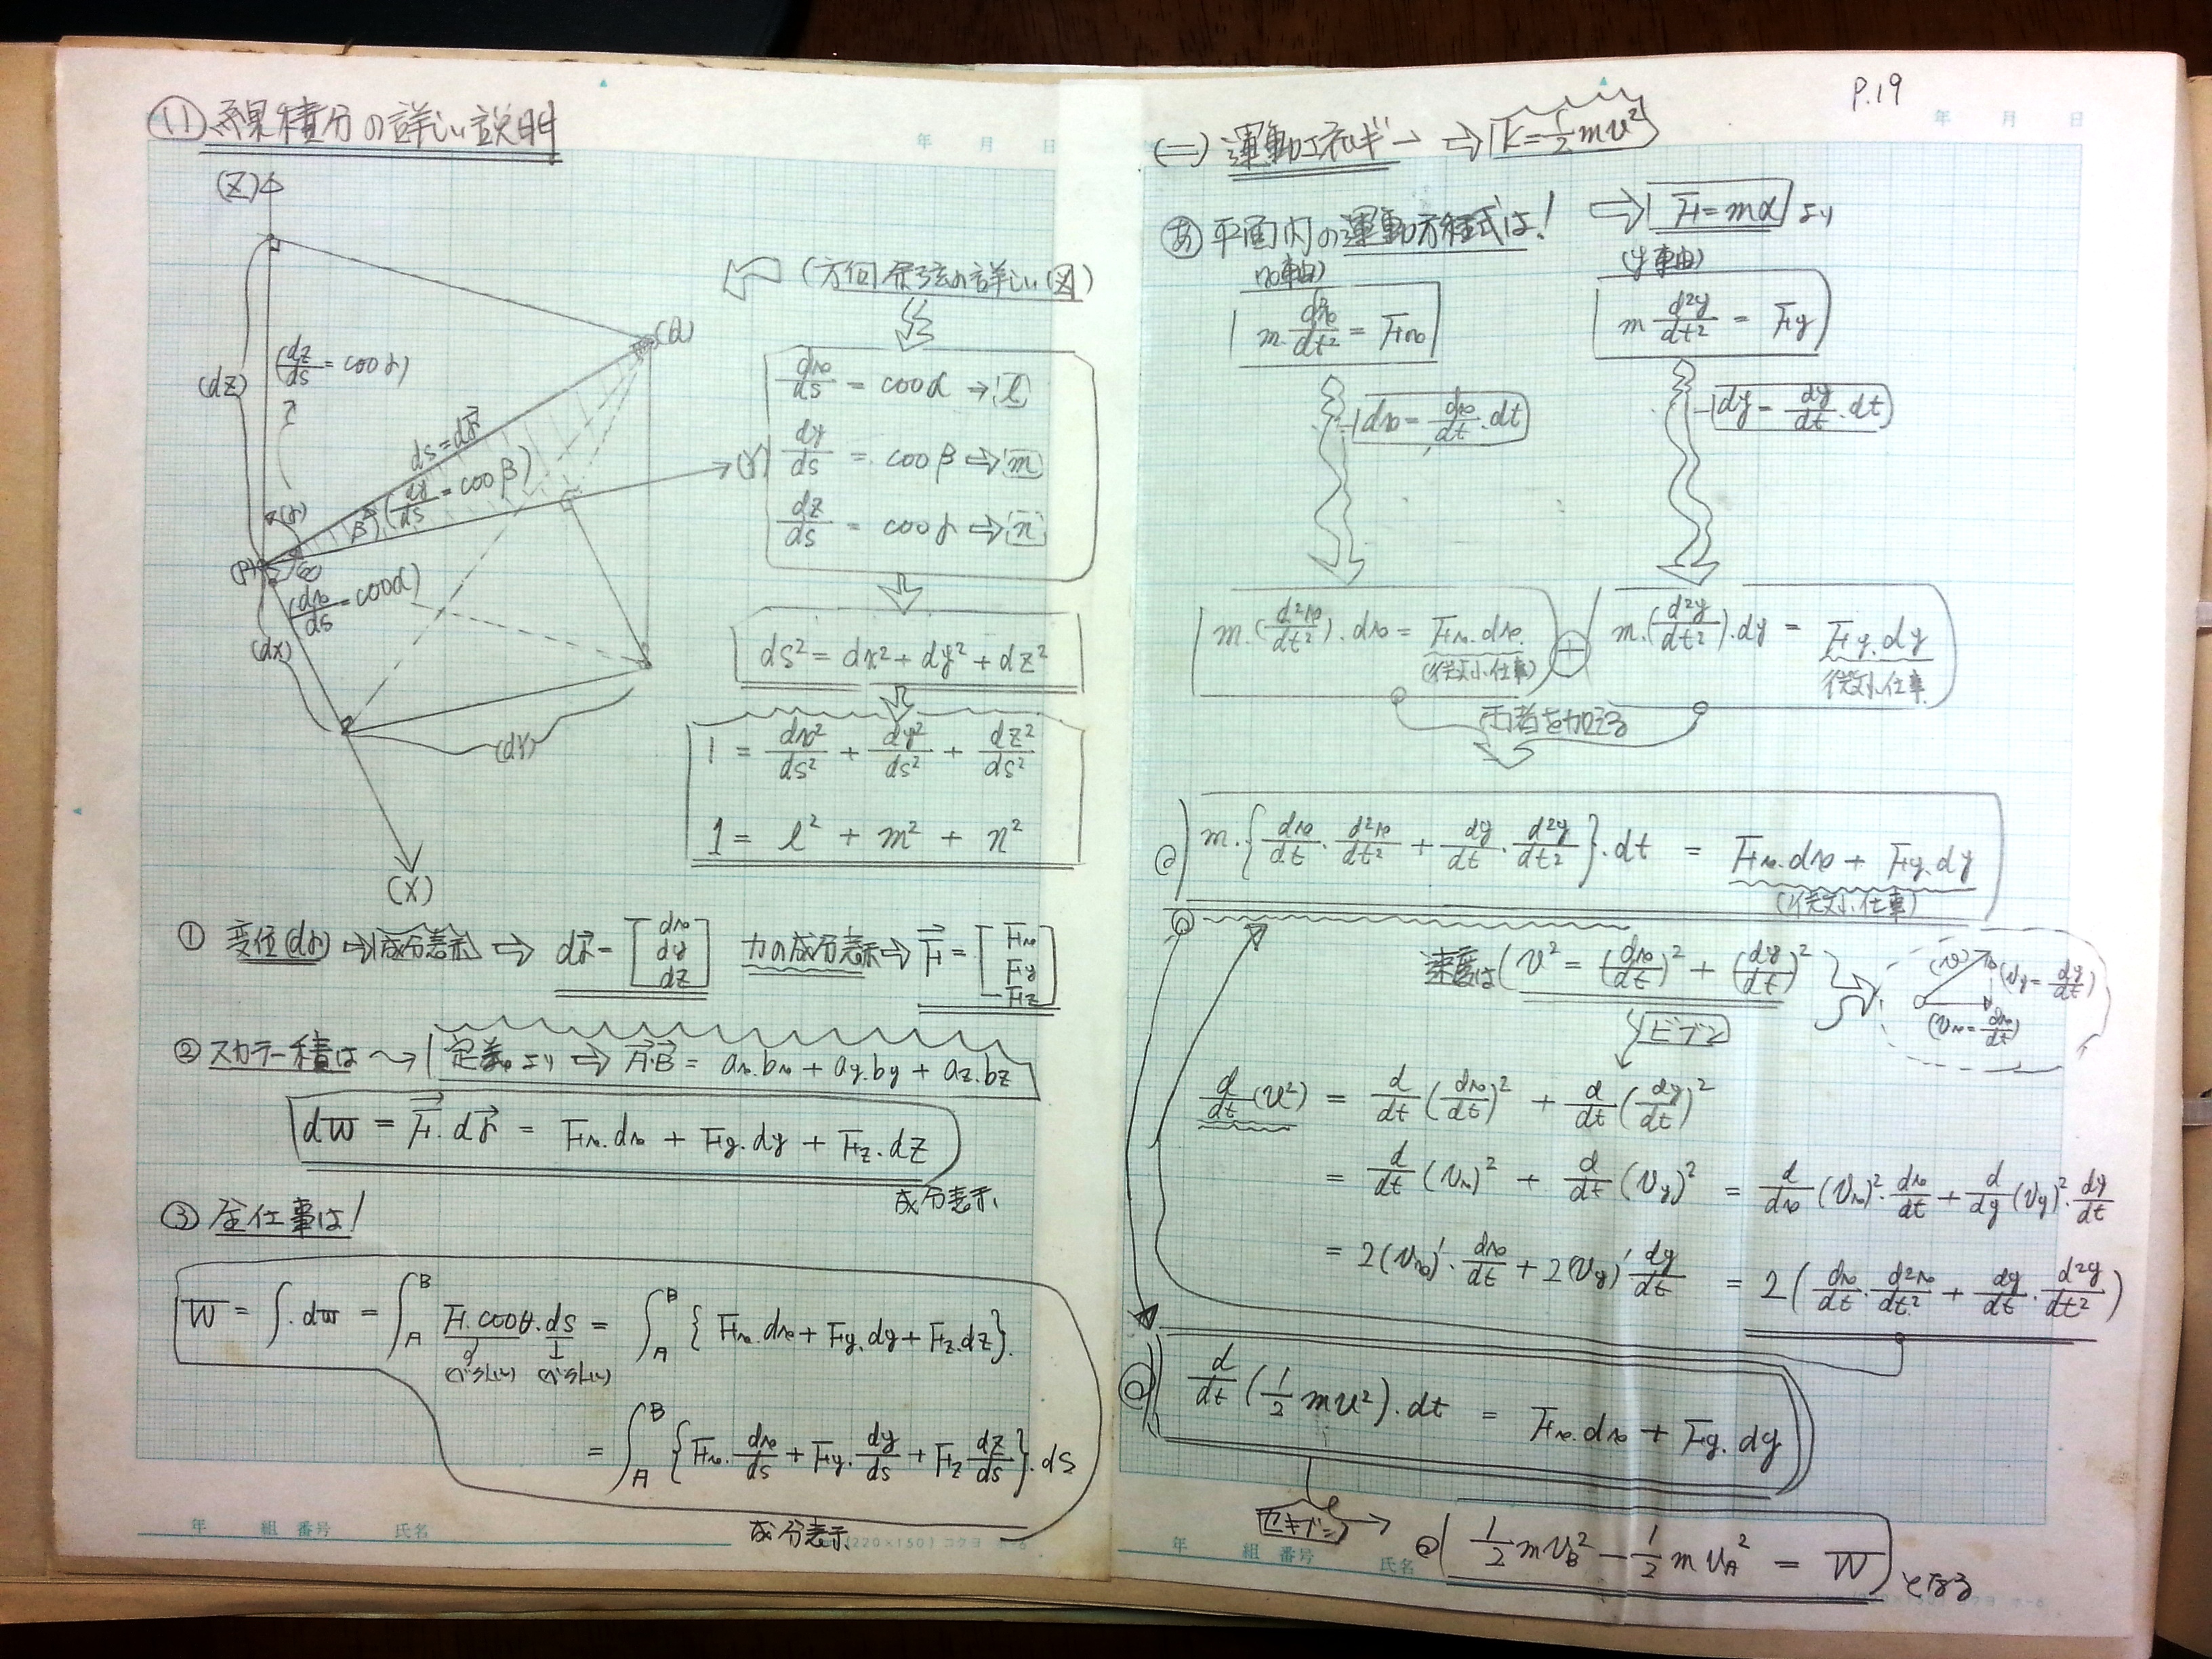 (11) 線積分の詳しい説明
(Z)
(Q)
(dz)
(dz/ds = cosγ)
ds = dr→
(dy/ds = cosβ)
(Y)
(γ)
(β)
(P)
(α)
(dx/ds = cosα)
(dx)
(dY)
(X)
(方向余弦の詳しい図)
dx/ds = cosα → l
dy/ds = cosβ ⇒ m
dz/ds = cosγ ⇒ n
ds² = dx² + dy² + dz²
1 = dx²/ds² + dy²/ds² + dz²/ds²
1 = l² + m² + n²
① 変位(dr) ⇒ 成分表示 ⇒ dr→ = [dx dy dz] 力の成分表示 ⇒ F→ = [Fx Fy Fz]
② スカラー積は 定義より ⇒ A→·B→ = ax·bx + ay·by + az·bz
dw = F→·dr→ = Fx·dx + Fy·dy + Fz·dz
成分表示
③ 全仕事は!
W = ∫·dw = ∫_A^B F·cosθ·ds = ∫_A^B {Fx·dx + Fy·dy + Fz·dz}
= ∫_A^B {Fx·dx/ds + Fy·dy/ds + Fz dz/ds}·ds
成分表示
年 組 番号 氏名
(220×150) コクヨ ホ-6
P.19
年 月 日
年 月 日
(二) 運動エネルギー ⇒ K = ½mv²
あ 平面内の運動方程式は! ⇒ F = mα より
(x軸)
(y軸)
m·d²x/dt² = Fx
m d²y/dt² = Fy
dx = dx/dt·dt
dy = dy/dt·dt
m·(d²x/dt²)·dx = Fx·dx (微小仕事) ⊕ m·(d²y/dt²)·dy = Fy·dy 微小仕事
両者を加える
m·{dx/dt·d²x/dt² + dy/dt·d²y/dt²}·dt = Fx·dx + Fy·dy
(微小仕事)
速度は (v² = (dx/dt)² + (dy/dt)²
(v)
(vy = dy/dt)
(vx = dx/dt)
ビブン
d/dt (v²) = d/dt (dx/dt)² + d/dt (dy/dt)²
= d/dt (vx)² + d/dt (vy)² = d/dx (vx)²·dx/dt + d/dy (vy)²·dy/dt
= 2(vx)'·dx/dt + 2(vy)' dy/dt = 2(dx/dt·d²x/dt² + dy/dt·d²y/dt²)
d/dt (½mv²)·dt = Fx·dx + Fy·dy
セキブン → ½mvB² − ½mvA² = W となる
年 組 番号 氏名